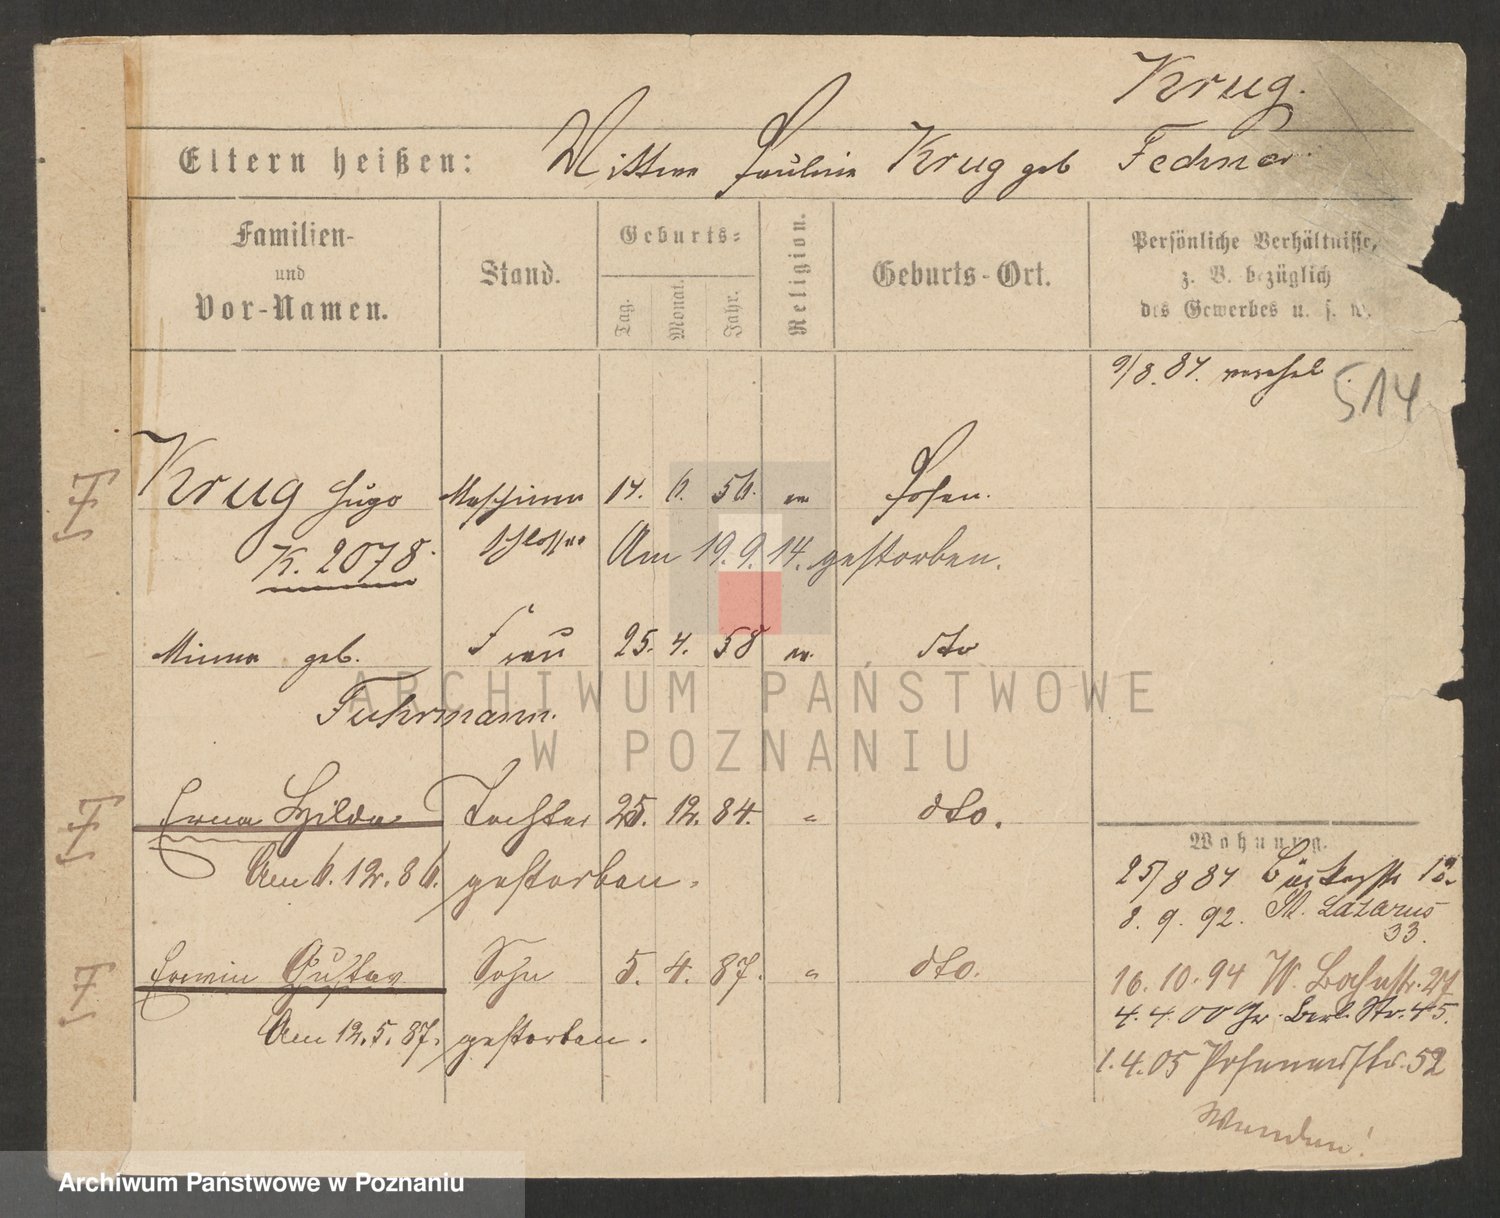 Krug.
Eltern heißen: Wittwe Pauline Krug geb Fechner.
Familien- und Vor-Namen.
Stand.
Geburts-
Tag. Monat. Jahr.
Religion.
Geburts-Ort.
Persönliche Verhältnisse,
z. B. bezüglich
des Gewerbes u. s. w.
9/8. 87.
514
Krug Hugo Maschinen 14. 6. 56. ev Posen.
K. 2078. schlosser Am 19.9.14. gestorben.
Minna geb. Frau 25. 4. 58 ev. dto
Fuhrmann.
Erna Hilda Tochter 25. 12. 84. " dto.
Am 6. 12. 86. gestorben.
Erwin Gustav Sohn 5. 4. 87. " dto.
Am 12. 5. 87. gestorben.
Wohnung.
25/8 87 12.
8. 9. 92. St. Lazarus
33.
16. 10. 94 W. 27
4. 4. 00 Gr. Berl. Str. 45.
1. 4. 05 Posenerstr. 52
Wenden!
F
F
F
ARCHIWUM PAŃSTWOWE
W POZNANIU
Archiwum Państwowe w Poznaniu